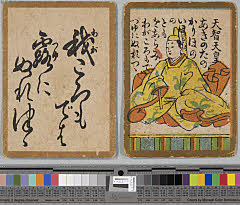 天智天皇
あきのたの
かりほの
いほの
とま
をあらみ
わがころもでは
つゆにぬれつゝ
我ころもでは
露に
ぬれつゝ